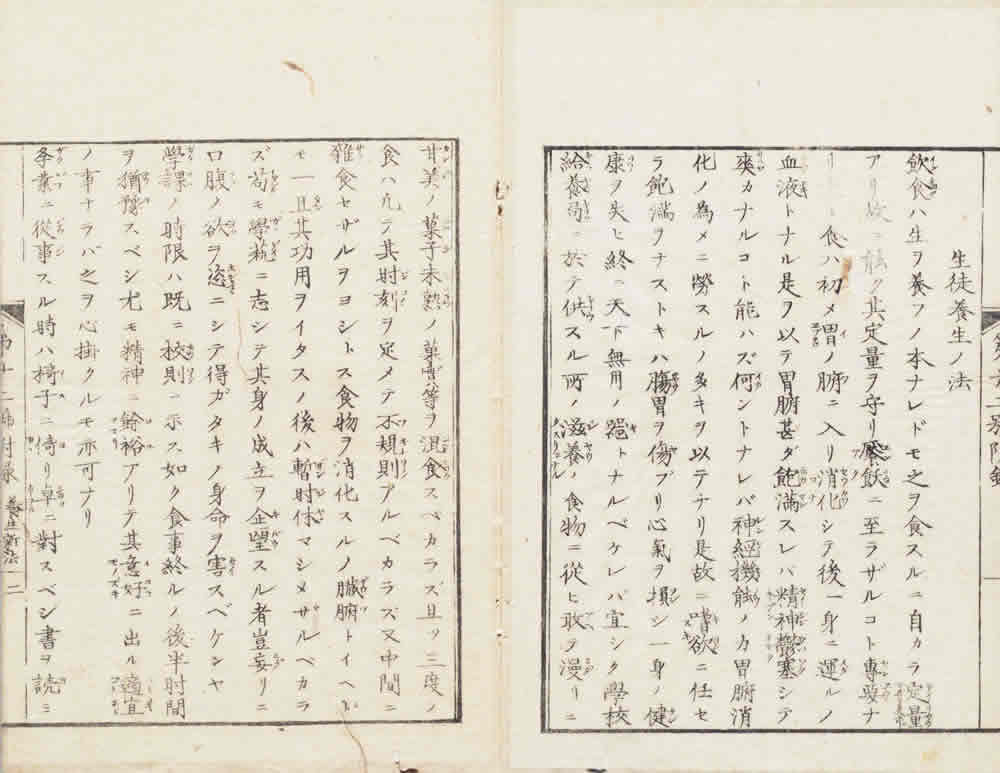 生徒養生ノ法
飲食ハ生ヲ養フノ本ナレドモ之ヲ食スルニ自カラ定量
アリ故ニ能ク其定量ヲ守リ饜飫ニ至ラザルコト専要ナ
リ 食ハ初メ胃ノ腑ニ入リ消化シテ後一身ニ運ルノ
血液トナル是ヲ以テ胃腑甚ダ飽満スレバ精神鬱塞シテ
爽カナルコト能ハズ何ントナレバ神經機能ノ力胃腑消
化ノ為メニ勞スルノ多キヲ以テナリ是故ニ嗜欲ニ任セ
ラ飽満ヲナストキハ腸胃ヲ傷ブリ心氣ヲ損シ一身ノ健
康ヲ失ヒ終ニ天下無用ノ トナルベケレバ宜シク學校
給養局ニ於テ供スル所ノ滋養ノ食物ニ從ヒ敢テ漫リニ
甘美ノ菓子未熟ノ菓實等ヲ混食スベカラズ且ツ三度ノ
食ハ凡テ其时刻ヲ定メテ不規則アルベカラズ又中間ニ
雜食セザルヲヨシトス食物ヲ消化スルノ臓腑トイヘドモ
モ一旦其功用ヲイタスノ後ハ暫时休マシメサルベカラ
ズ苟モ學藝ニ志シテ其身ノ成立ヲ企望スル者豈妄リニ
口腹ノ欲ヲ恣ニシテ得ガタキノ身命ヲ害スベケンヤ
學課ノ时限ハ既ニ校則ニ示ス如ク食事終ルノ後半时間
ヲ猶豫スベシ尤モ精神ニ餘裕アリテ其意好ニ出ル適宜
ノ事ナラバ之ヲ心掛クルモ亦可ナリ
条業ニ從事スル時ハ椅子ニ倚リ卓ニ對スベシ書ヲ読ミ
附録 養生新法 二